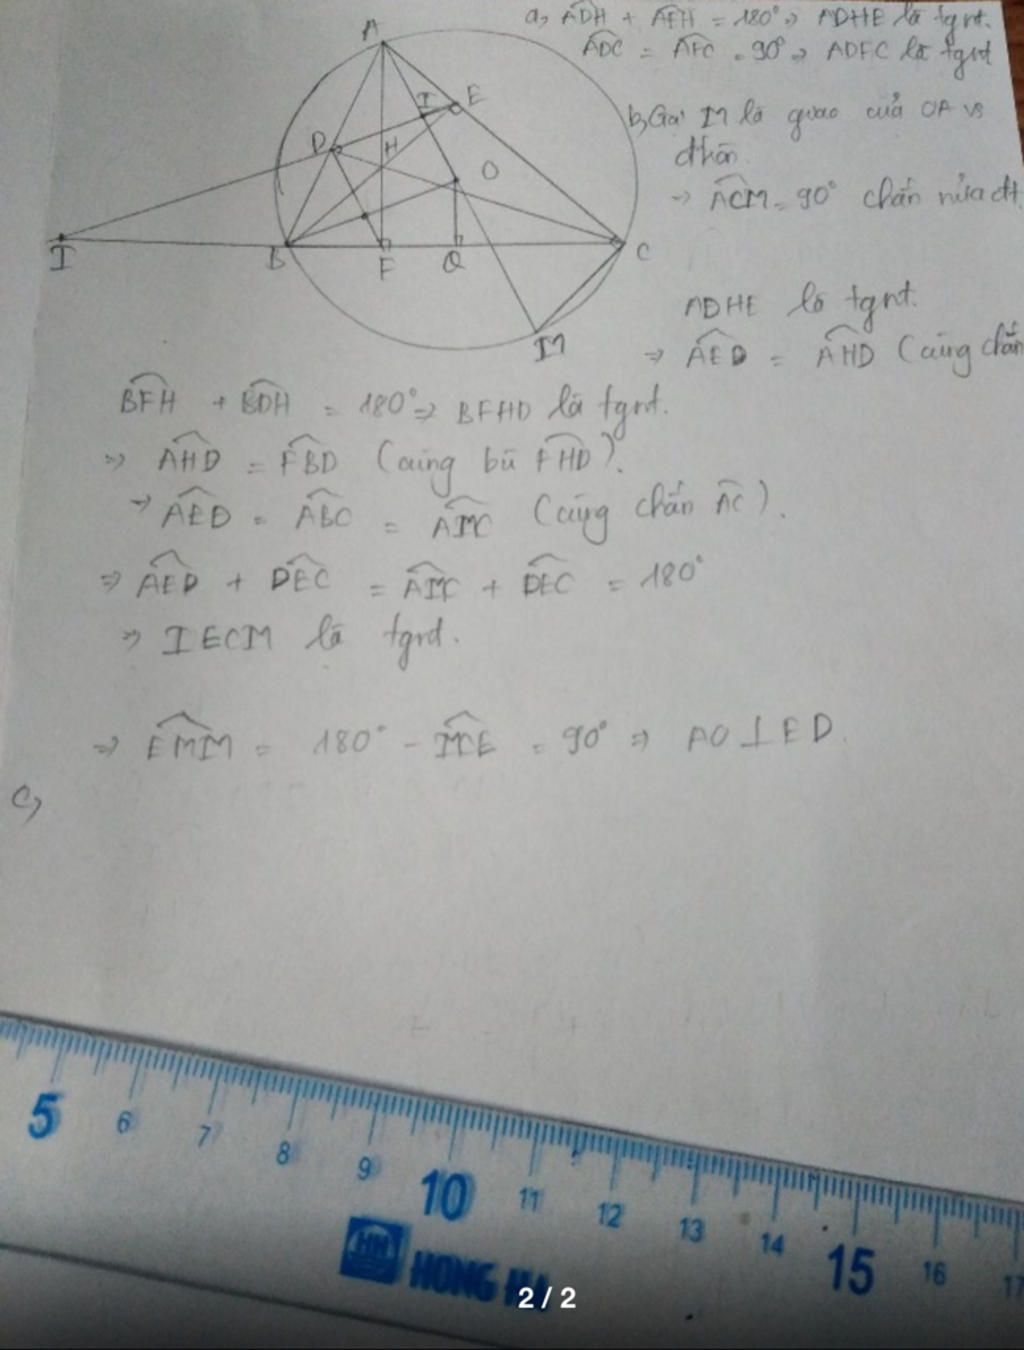 a, ADH + AEH = 180° => ADHE là tgnt.
ADC = AFC = 90° => ADFC là tgnt
b, Gọi M là giao của OA vs
đtròn
→ ACM = 90° chắn nửa đt
ADHE là tgnt.
=> AED = AHD (cùng chắn
BFH + BDH = 180° => BFHD là tgnt.
=> AHD = FBD (cùng bù FHD).
→ AED = ABC = AMC (cùng chắn AC).
=> AED + DEC = AMC + DEC = 180°
=> IECM là tgnt.
=> = 180° - MCE = 90° => AO ⊥ ED.
c,
A
I
E
D
H
O
I
B
F
Q
C
M
5 6 7 8 9 10 11 12 13 14 15 16 17
HH HONG HA
2 / 2